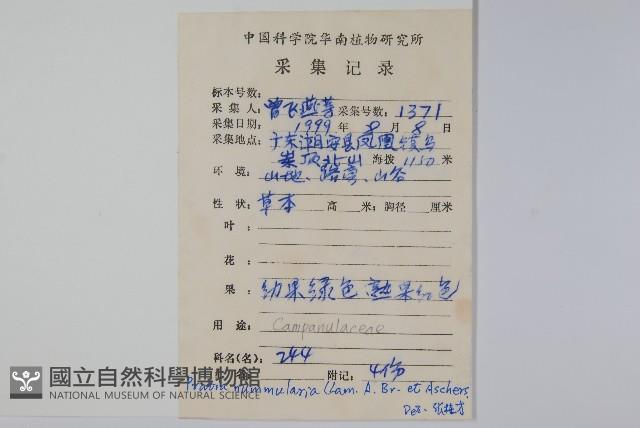 中国科学院华南植物研究所
采集记录
标本号数:
采集人: 曾飞燕等 采集号数: 1371
采集日期: 1999 年 8 月 8 日
采集地点: 广东潮安县凤凰镇乌
岽顶 山 海拨 1150 米
环境: 山地、路旁、山谷
性状: 草本 高 米; 胸径 厘米
叶:
花:
果: 幼果绿色 熟果红色
用途: Campanulaceae
科名(名): 244
附记: 4份
Pratia nummularia (Lam. A. Br. et Aschers.
Det.
國立自然科學博物館
NATIONAL MUSEUM OF NATURAL SCIENCE